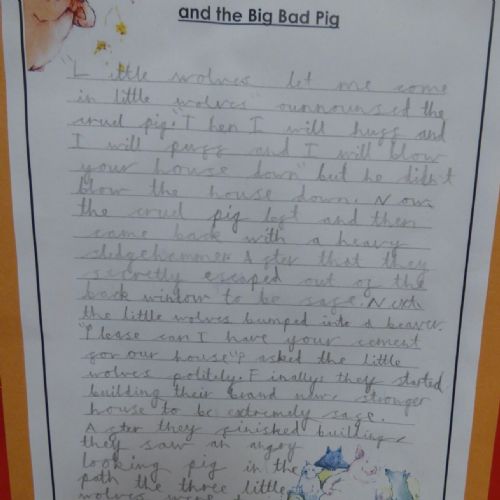 and the Big Bad Pig
"Little wolves let me come
in little wolves" ounnounsed the
cruel pig. "Then I will hugg and
I will pugg and I will blow
your house down" but he didn't
blow the house down. Now
the cruel pig left and then
came back with a heavy
sledgehammer After that they
secretly escaped out of the
back window to be safe. Next
the little wolves bumped into a beaver.
"Please can I have your cement
for our house"? asked the little
wolves politely. Finally they started
building their brand new stronger
house to be extremely safe.
After they finished building
they saw an angry
looking pig in the
path the three little
wolves were